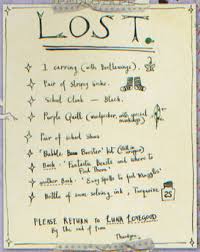 LOST.
1 earring (with Beetlewings).
Pair of Stripy Socks.
School Cloak - Black.
Purple Quill (woodpecker, with special markings)
Pair of School Shoes
'Bubble Booster' kit (still in
Book - 'Fantastic Beasts and where to Find Them'
another Book - 'Easy Spells to fool Muggles'
Bottle of sum-solving ink, Turquoise
25
PLEASE RETURN to LUNA LOVEGOOD
By the end of term
Thankyou.